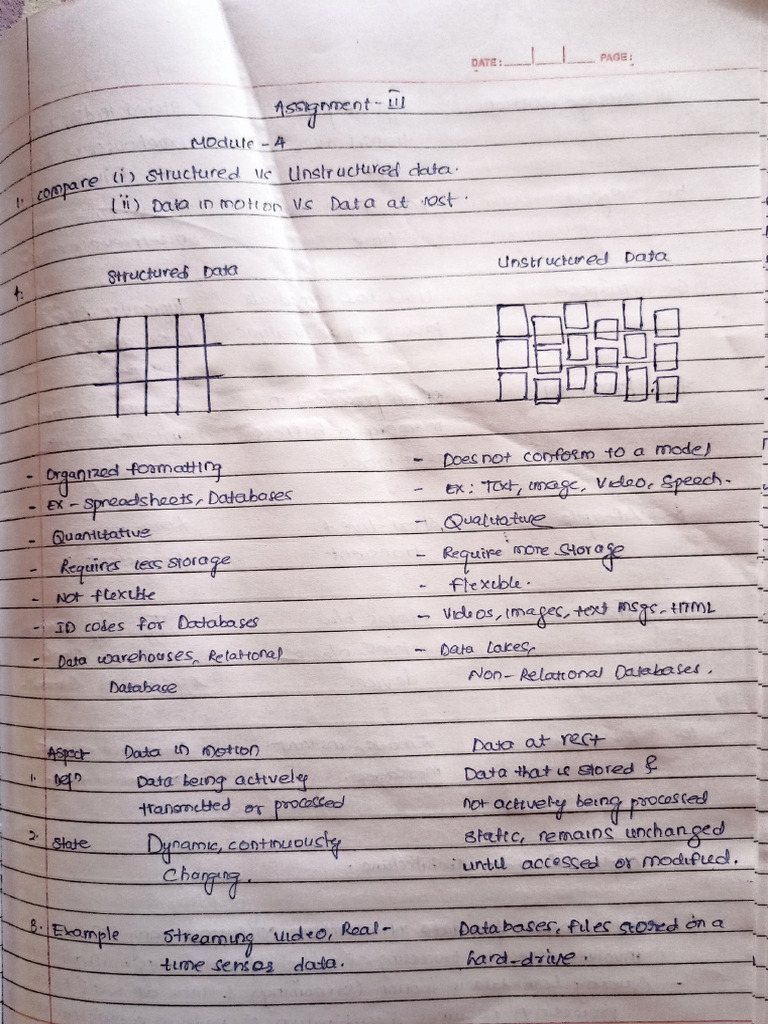 DATE: PAGE:
Assignment - III
Module - 4
1. compare (i) Structured vs Unstructured data.
(ii) Data in motion Vs Data at rest.
Structured Data Unstructured Data
- Organized formatting - Does not conform to a model
- Ex - Spreadsheets, Databases - Ex: Text, image, Video, Speech.
- Quantitative - Qualitative
- Requires less storage - Require more storage
- Not flexible - Flexible.
- ID codes for Databases - Videos, images, text msgs, HTML
- Data warehouses, Relational - Data Lakes,
Database Non-Relational Databases.
Aspect Data in motion Data at rest
1. Defn Data being actively Data that is stored &
transmitted or processed not actively being processed
2. State Dynamic, continuously static, remains unchanged
Changing. until accessed or modified.
3. Example Streaming video, Real- Databases, files stored on a
time sensor data. hard-drive.